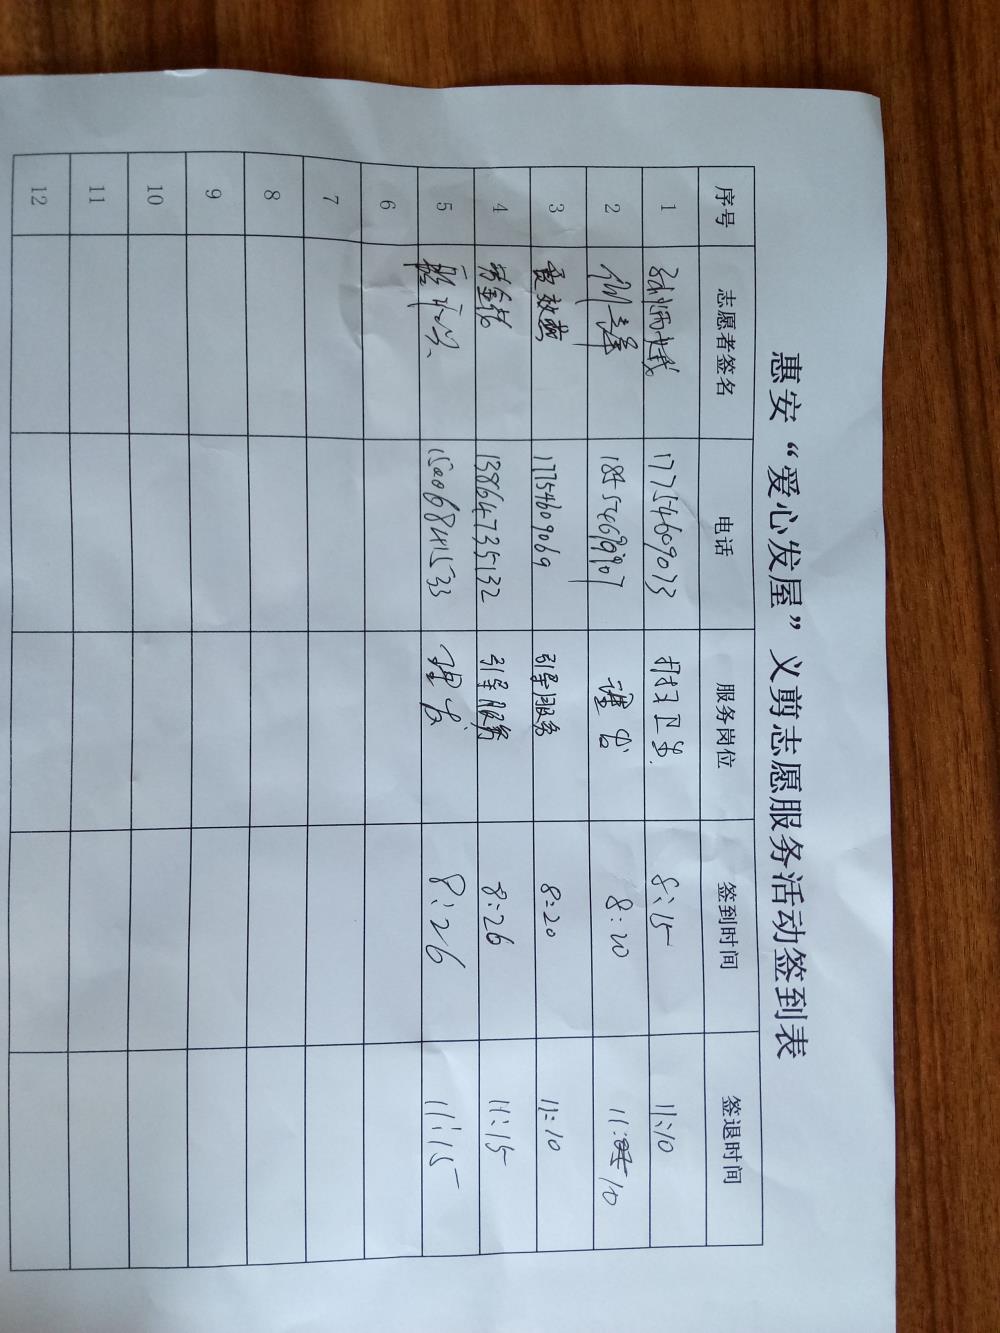 惠安“爱心发屋”义剪志愿服务活动签到表
序号 志愿者签名 电话 服务岗位 签到时间 签退时间
1 17754609073 打扫卫生 8:15 11:10
2 理发 8:20 11:10
3 17754609069 引导服务 8:20 11:10
4 13864735132 引导服务 8:26 11:15
5 理发 8:26 11:15
6
7
8
9
10
11
12